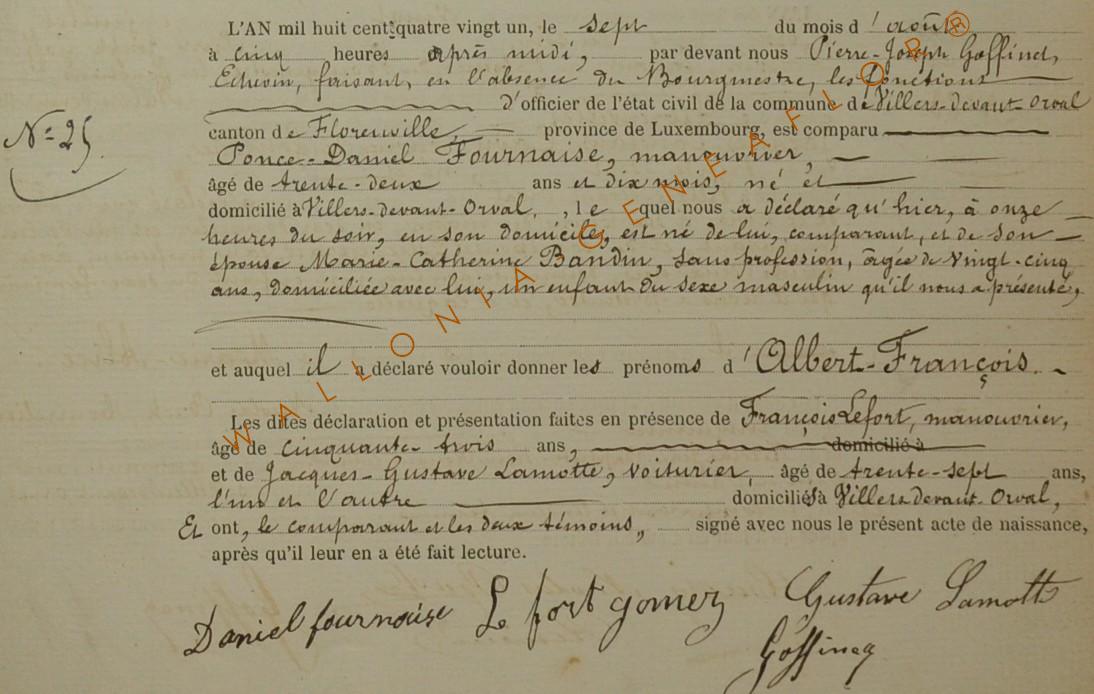 L'AN mil huit cent quatre vingt un, le sept du mois d'août
à cinq heures après midi, par devant nous Pierre-Joseph Goffinet,
Echevin, faisant, en l'absence du Bourgmestre, les fonctions
D'officier de l'état civil de la commune de Villers-devant-Orval
canton de Florenville, province de Luxembourg, est comparu
Ponce-Daniel Fournaise, manouvrier,
âgé de trente-deux ans et dix mois, né et
domicilié à Villers-devant-Orval, , le quel nous a déclaré qu'hier, à onze
heures du soir, en son domicile, est né de lui, comparant, et de son
épouse Marie-Catherine Bandin, sans profession, âgée de vingt-cinq
ans, domiciliée avec lui, un enfant du sexe masculin qu'il nous a présenté,
et auquel il a déclaré vouloir donner les prénoms d'Albert-François.
Les dites déclaration et présentation faites en présence de François Lefort, manouvrier,
âgé de cinquante-trois ans, domicilié à
et de Jacques-Gustave Lamotte, voiturier, âgé de trente-sept ans,
l'un et l'autre domiciliés à Villers devant-Orval,
Et ont, le comparant et les deux témoins, signé avec nous le présent acte de naissance,
après qu'il leur en a été fait lecture.
N° 25
Daniel fournaise Lefort gomez Gustave Lamotte
Goffineg
WALLONIA GENEAFLOR ®